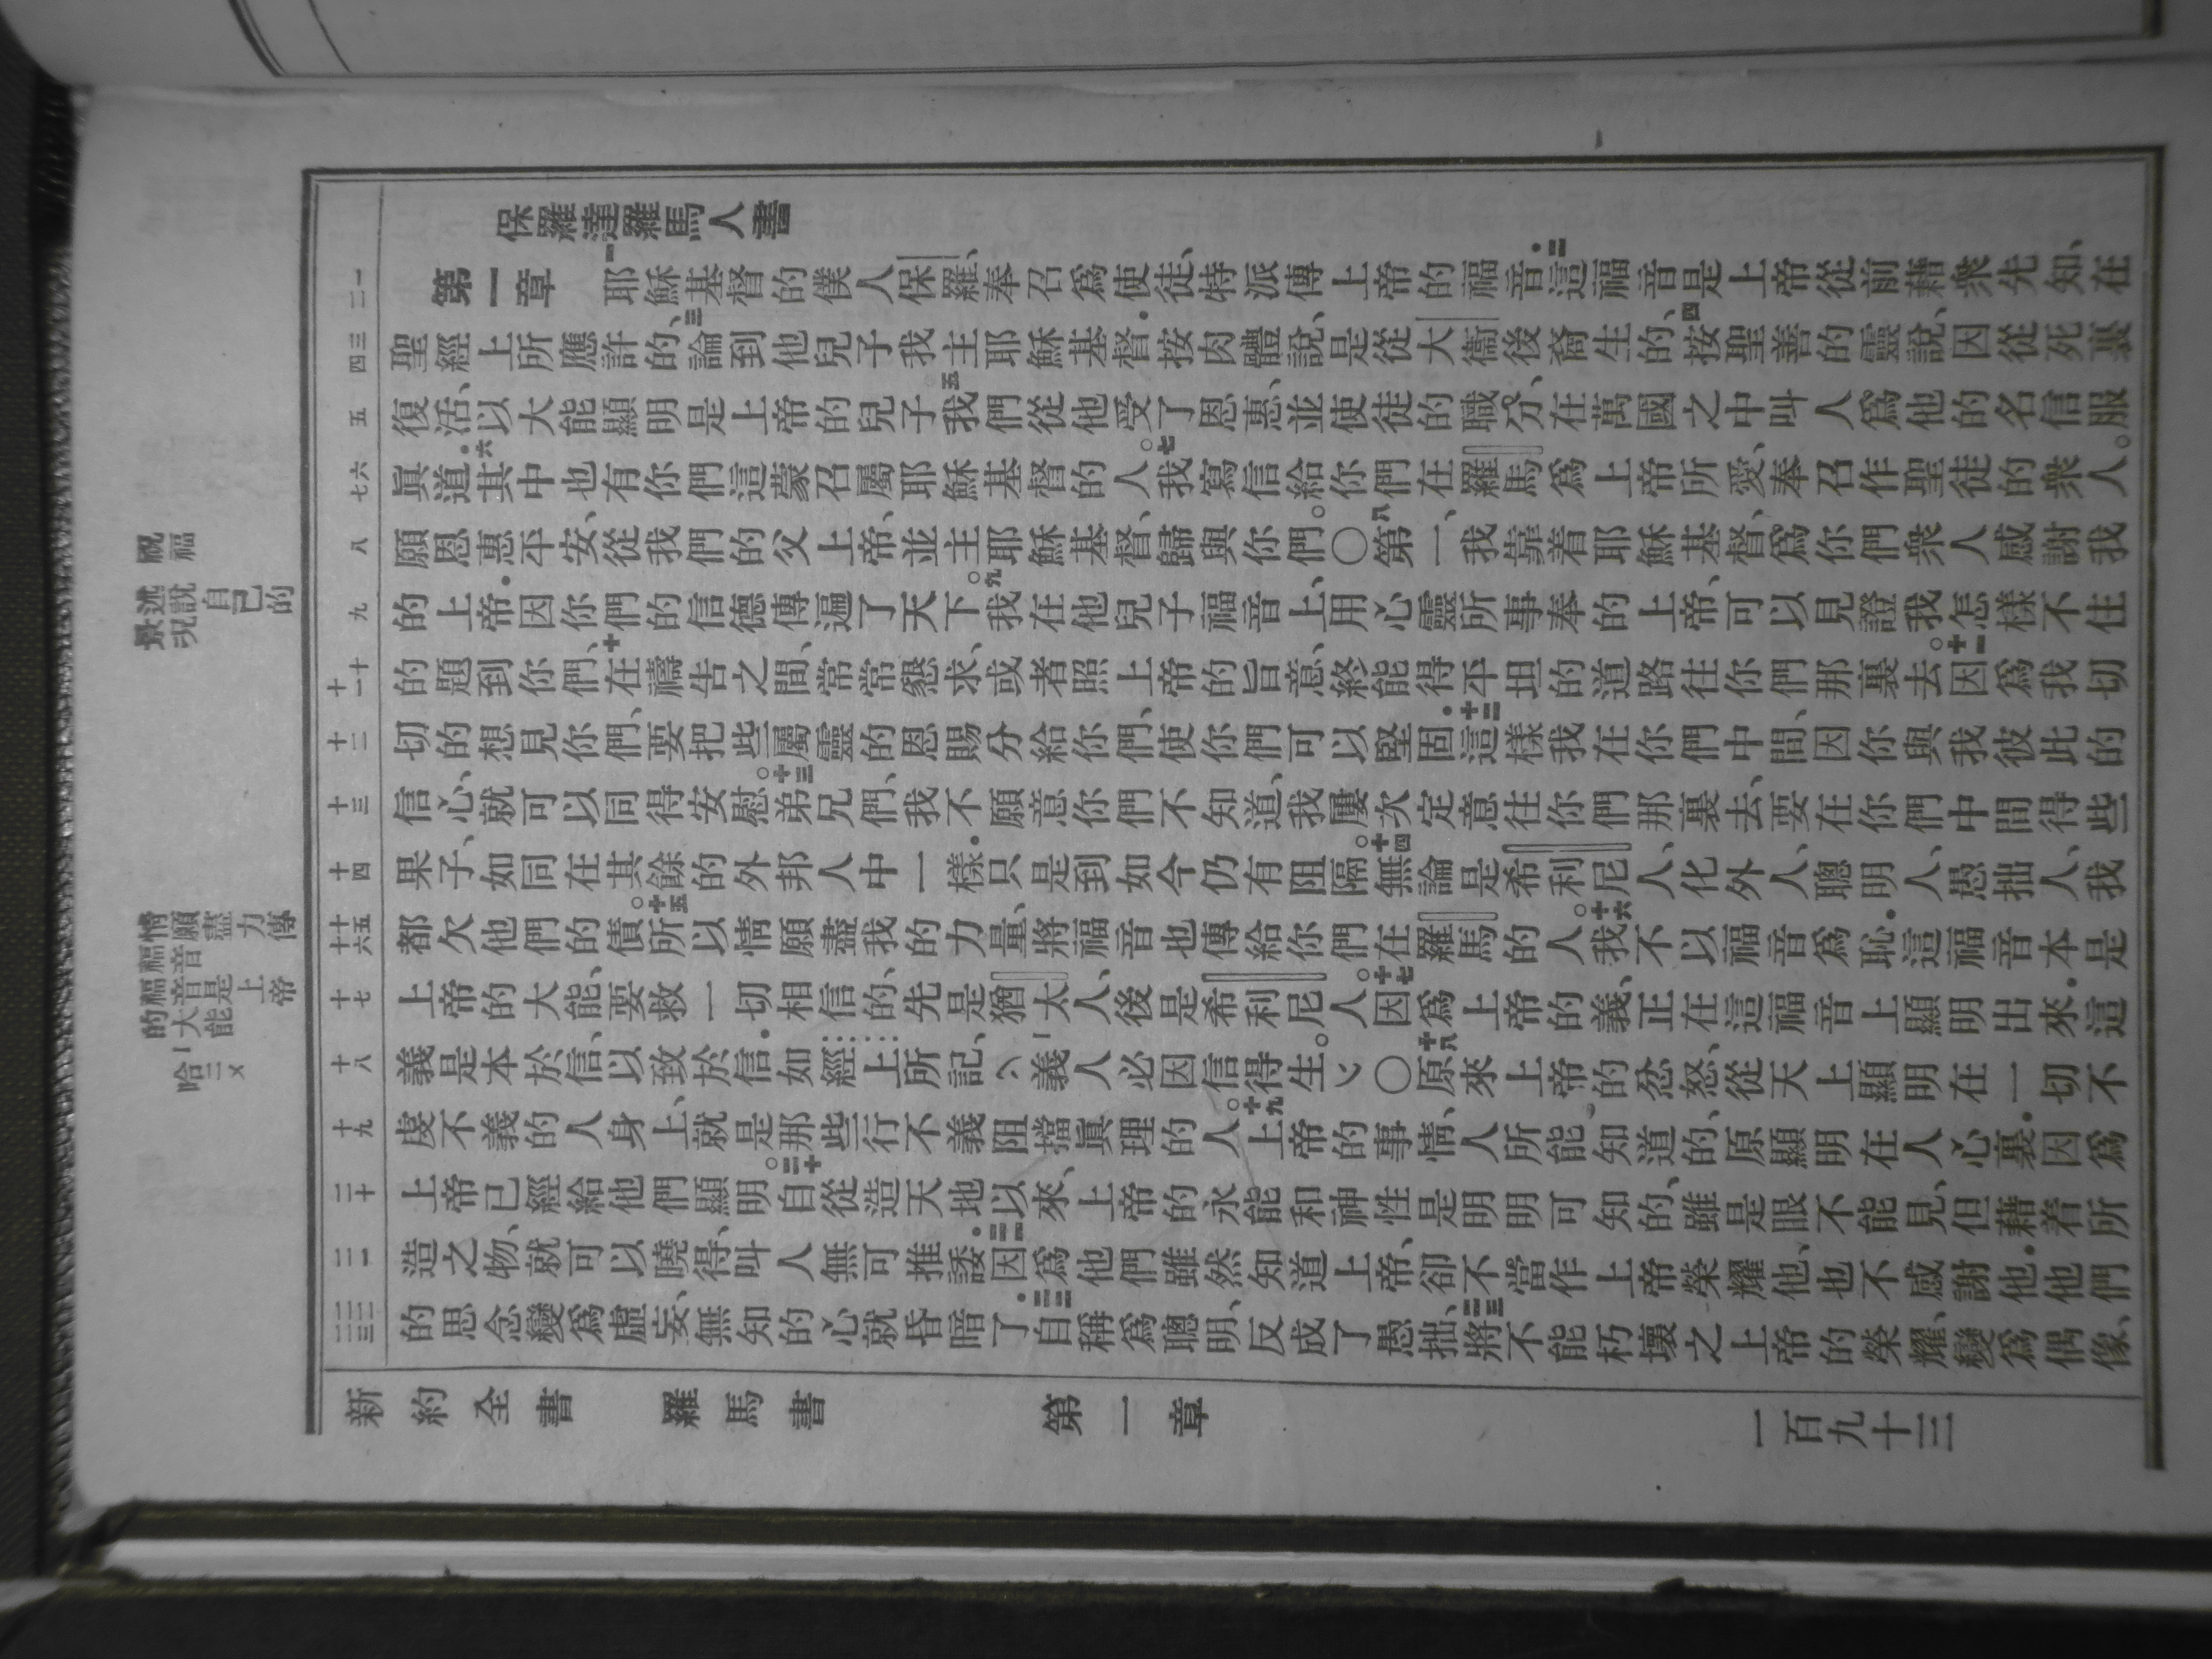 保羅達羅馬人書
第一章 一耶穌基督的僕人保羅、奉召爲使徒、特派傳上帝的福音.二這福音是上帝從前藉衆先知、在
聖經上所應許的、三論到他兒子我主耶穌基督.按肉體說、是從大衞後裔生的、四按聖善的靈說、因從死裏
復活、以大能顯明是上帝的兒子五我們從他受了恩惠、並使徒的職分、在萬國之中叫人爲他的名信服
眞道.六其中也有你們這蒙召屬耶穌基督的人。七我寫信給你們在羅馬爲上帝所愛、奉召作聖徒的衆人。
願恩惠平安、從我們的父上帝、並主耶穌基督、歸與你們。〇八第一、我靠着耶穌基督、爲你們衆人感謝我
的上帝.因你們的信德傳遍了天下。九我在他兒子福音上、用心靈所事奉的上帝、可以見證我怎樣不住
的題到你們、十在禱告之間、常常懇求、或者照上帝的旨意、終能得平坦的道路往你們那裏去。十一因爲我切
切的想見你們、要把些屬靈的恩賜分給你們、使你們可以堅固.十二這樣我在你們中間、因你與我彼此的
信心、就可以同得安慰。十三弟兄們、我不願意你們不知道、我屢次定意往你們那裏去、要在你們中間得些
果子、如同在其餘的外邦人中一樣.只是到如今仍有阻隔。十四無論是希利尼人、化外人、聰明人、愚拙人、我
都欠他們的債。十五所以情願盡我的力量、將福音也傳給你們在羅馬的人。十六我不以福音爲恥.這福音本是
上帝的大能、要救一切相信的、先是猶太人、後是希利尼人。十七因爲上帝的義、正在這福音上顯明出來.這
義是本於信、以致於信.如經上所記、義人必因信得生。〇十八原來上帝的忿怒、從天上顯明在一切不
虔不義的人身上、就是那些行不義阻擋眞理的人。十九上帝的事情、人所能知道的、原顯明在人心裏.因爲
上帝已經給他們顯明。二十自從造天地以來、上帝的永能和神性是明明可知的、雖是眼不能見、但藉着所
造之物、就可以曉得、叫人無可推諉.二一因爲他們雖然知道上帝、卻不當作上帝榮耀他、也不感謝他.他們
的思念變爲虛妄、無知的心就昏暗了.二二自稱爲聰明、反成了愚拙、二三將不能朽壞之上帝的榮耀、變爲偶像、
新約全書 羅馬書 第一章 一百九十三
祝福
述說自己的景況
情願盡力傳福音
福音是上帝的大能
哈二